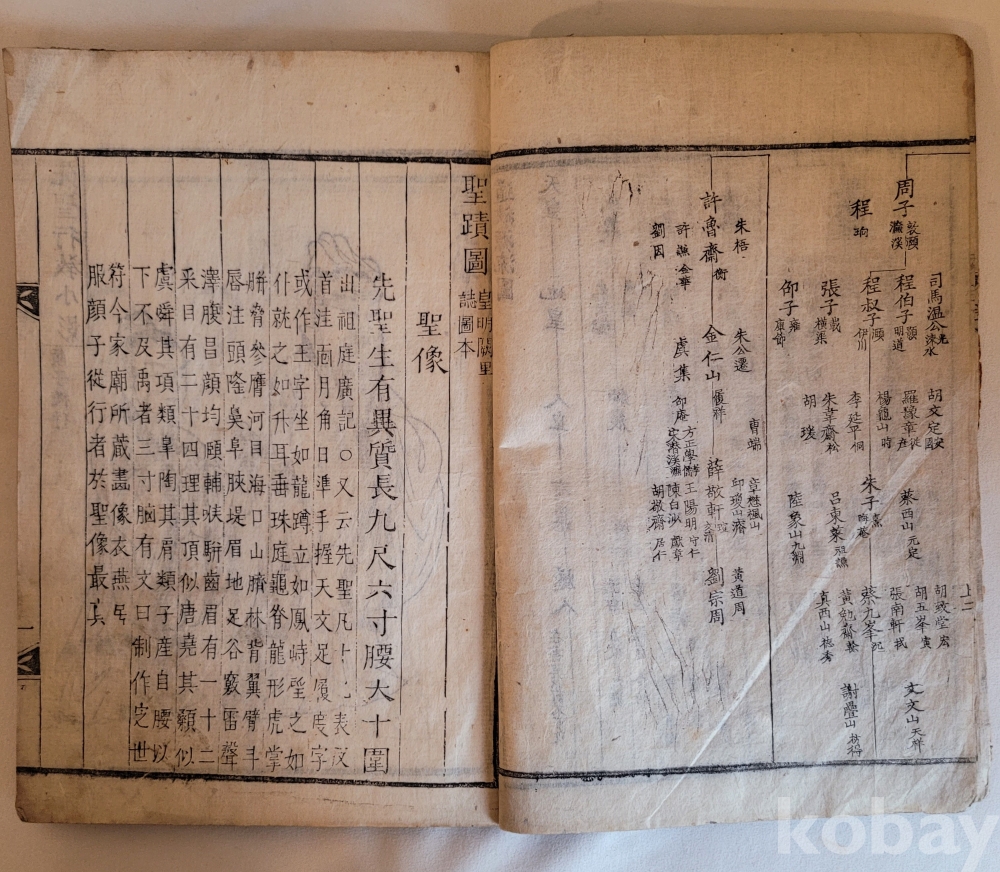 周子 敦頤 濂溪
程珦
司馬溫公 光 涑水
程伯子 顥 明道
程叔子 頤 伊川
張子 載 橫渠
邵子 雍 康節
胡文定 安國
羅豫章 從彥
楊龜山 時
李延平 侗
朱韋齋 松
胡瑗
蔡西山 元定
朱子 熹 晦菴
呂東萊 祖謙
陸象山 九淵
胡致堂 宏
胡五峯 寅
張南軒 栻
蔡九峯 沈
黃勉齋 榦
真西山 德秀
文文山 天祥
謝疊山 枋得
上二
朱梧
許魯齋 衡
許謙 金華
劉因
朱公遷
金仁山 履祥
虞集 邵庵
曹端
章懋楓山
邱瓊山濬
薛敬軒 瑄 文清
方正學 孝孺
宋潛溪 濂
王陽明 守仁
陳白沙 獻章
胡敬齋 居仁
黃道周
劉宗周
聖蹟圖 皇明闕里誌圖本
聖像
先聖生有異質長九尺六寸腰大十圍
山祖庭廣記○又云先聖凡十九表文
首洼面月角日準手握天文足履度字
或作王字坐如龍蹲立如鳳峙望之如
仆就之如升耳垂珠庭龜脊龍形虎掌
胼脅參膺河目海口山臍林背翼臂斗
唇注頭隆臯阜脥堤眉地足谷竅雷聲
澤腹昌顔均頤輔喉駢齒眉有一十二
采目有二十四理其頂似唐堯其顙似
虞舜其項類臯陶其肩類子產自腰以
下不及禹者三寸腦有文曰制作定世
符今家廟所蔵畫像衣燕居
服顔子從行者於聖像最真
kobay